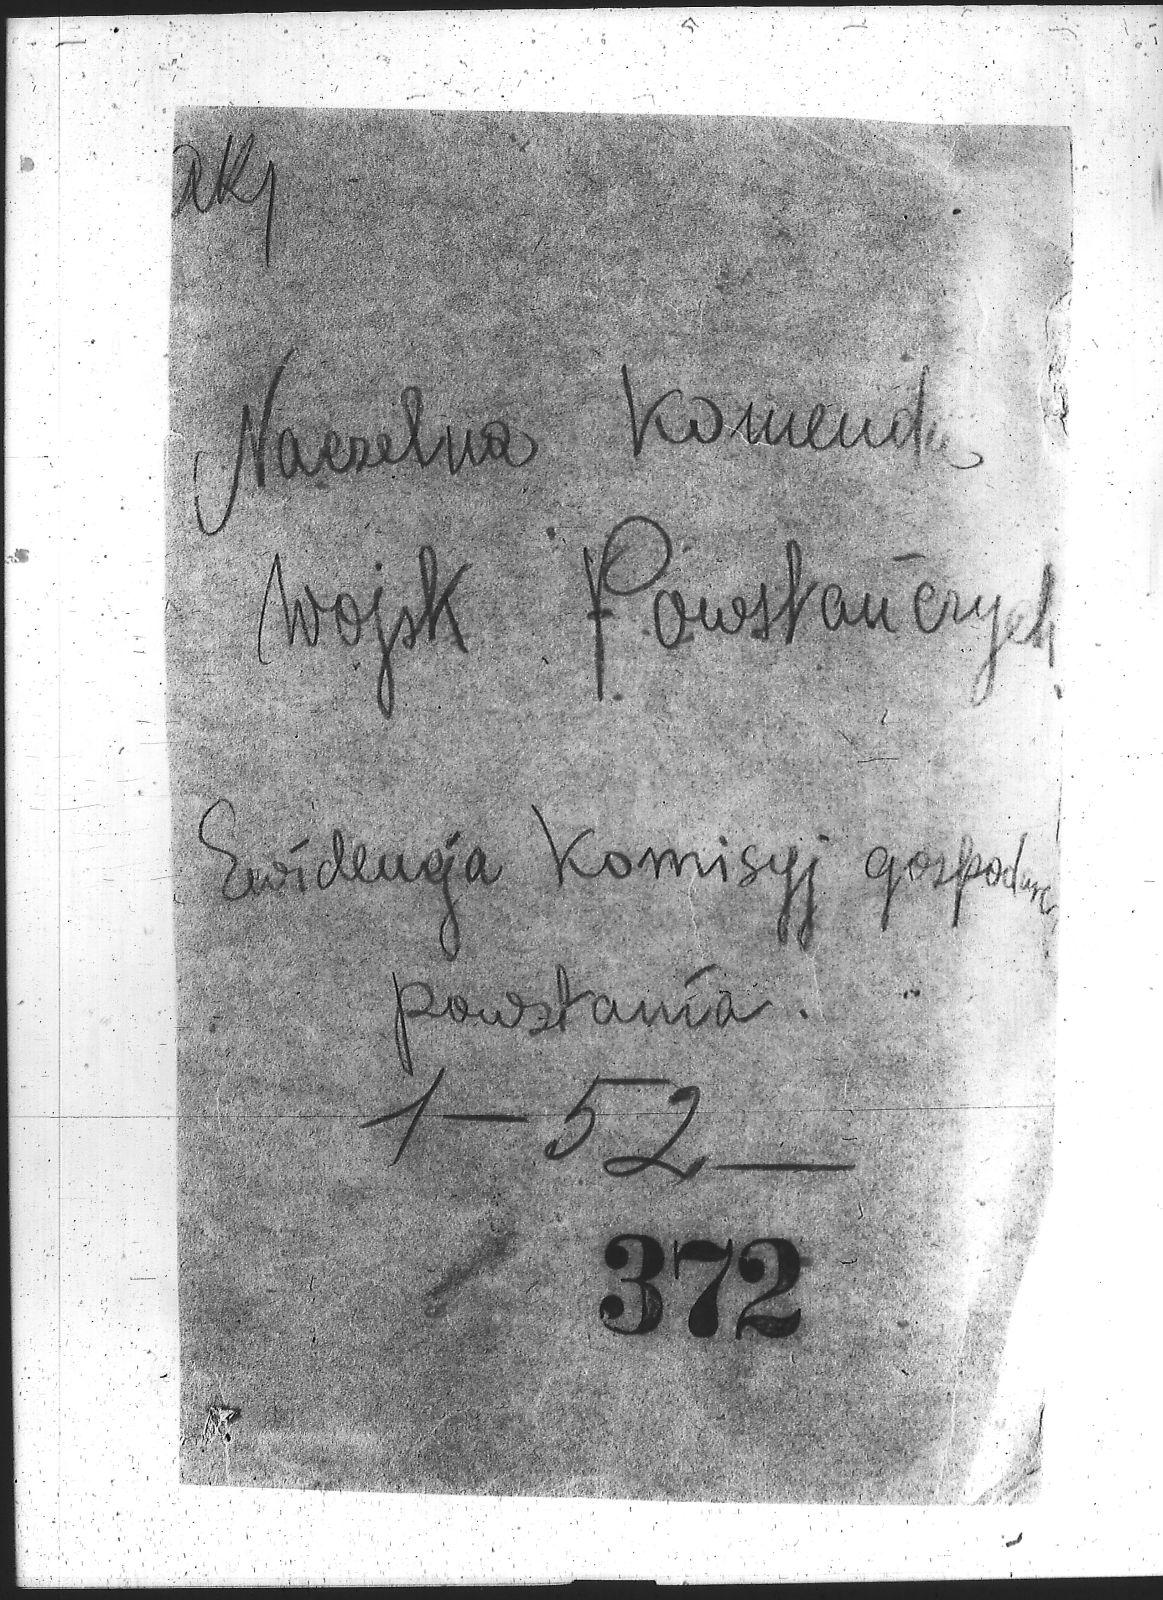 Naczelna Komenda
Wojsk Powstańczych
Ewidencja Komisyj gospodarc
powstania.
1 — 52 —
372